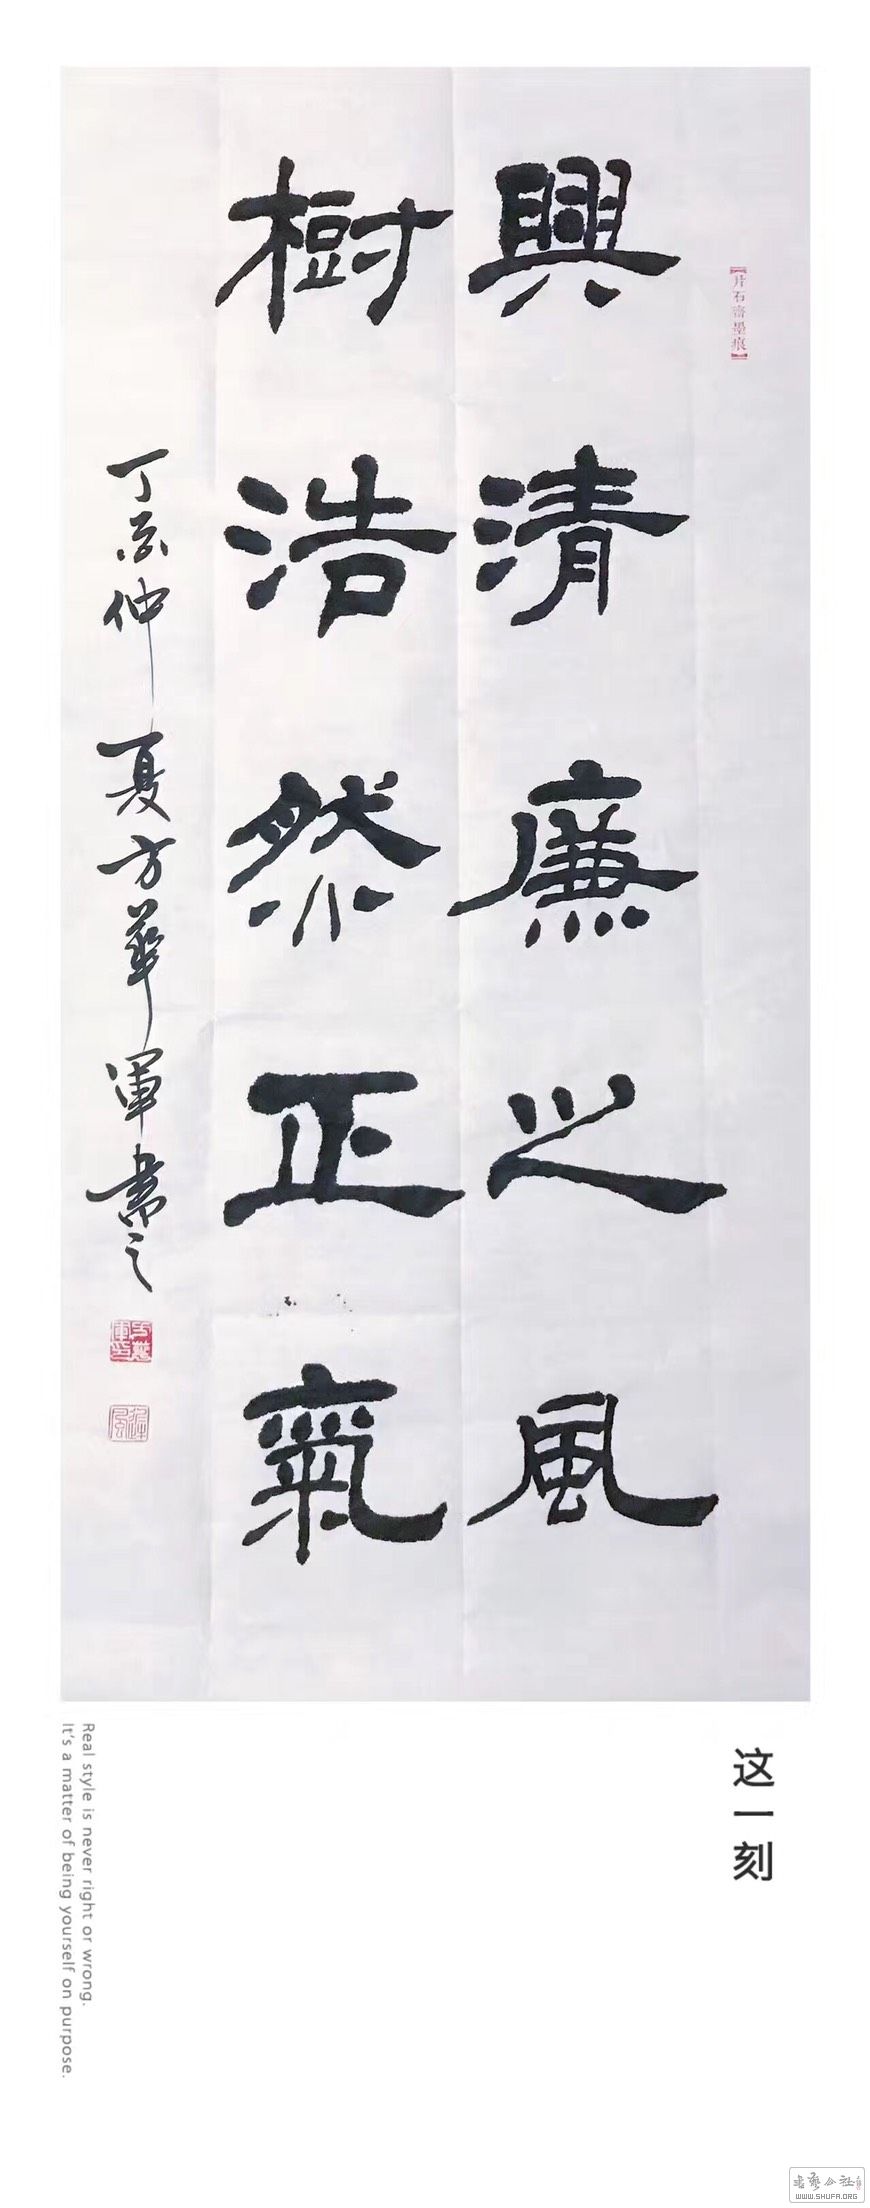 【片石齋墨痕】
興清廉之風
樹浩然正氣
丁酉仲夏方華軍書之
这一刻
Real style is never right or wrong.
It's a matter of being yourself on purpose.
书艺公社
WWW.SHUFA.ORG